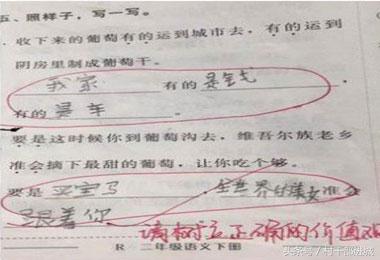 五、照样子，写一写。
．收下来的葡萄有的运到城市去，有的运到
阴房里制成葡萄干。
我家 有的是钱
有的是车
要是这时候你到葡萄沟去，维吾尔族老乡
准会摘下最甜的葡萄，让你吃个够。
要是买宝马，全世界的美女准会
跟着你
请树立正确的价值观
R 二年级语文下图
头条号／村干部进城